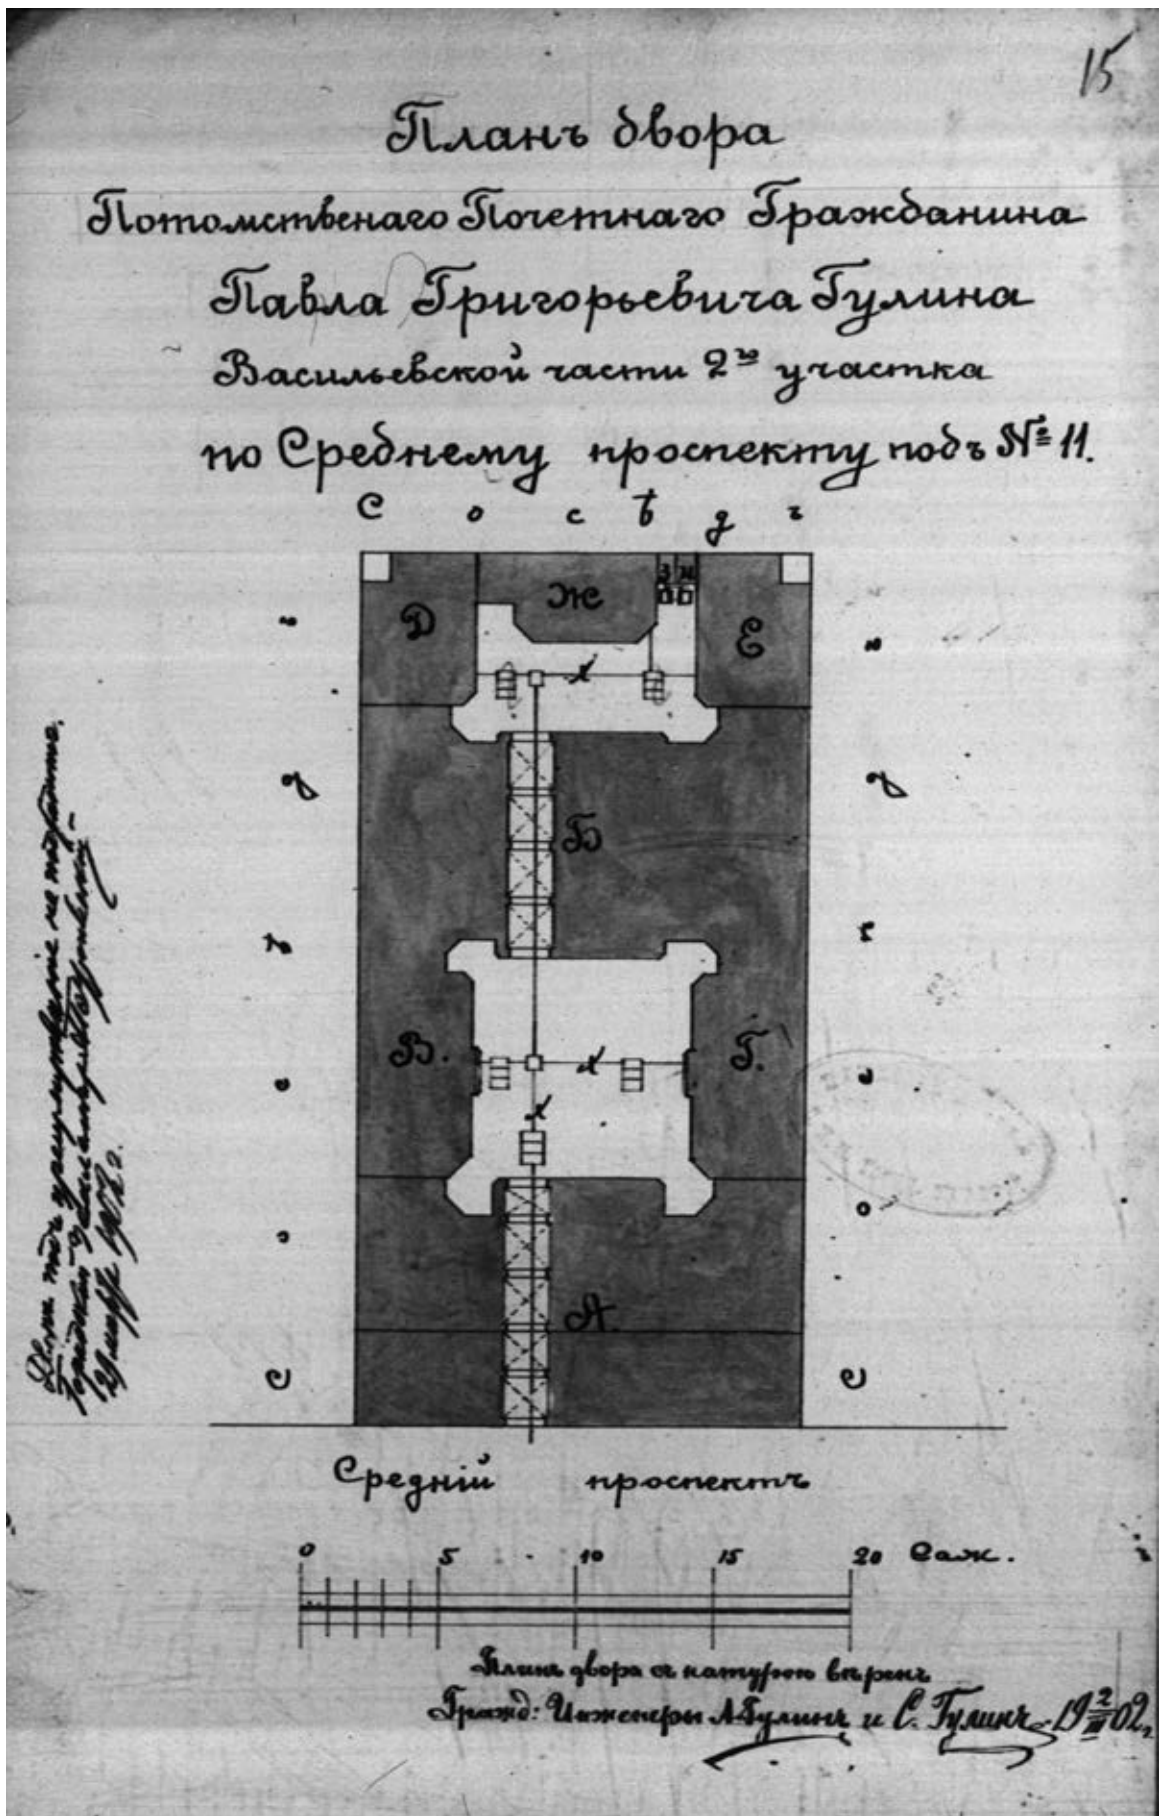 15
Планъ двора
Потомственаго Почетнаго Гражданина
Павла Григорьевича Гулина
Васильевской части 2го участка
по Среднему проспекту подъ № 11.
Сосѣдъ
Сосѣдъ
Сосѣдъ
Д
Ж
З
И
Е
Б
В.
Г.
А.
Средній проспектъ
0 5 10 15 20 Саж.
Планъ двора съ натурою вѣренъ
Гражд: Инженеры А. Гулинъ и С. Гулинъ 19 2/III 02 г.